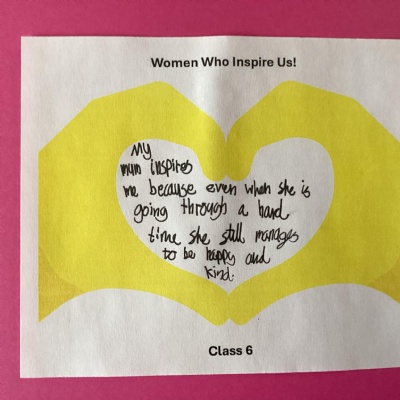 Women Who Inspire Us!
My
mum inspires
me because even when she is
going through a hard
time she still manages
to be happy and
kind.
Class 6